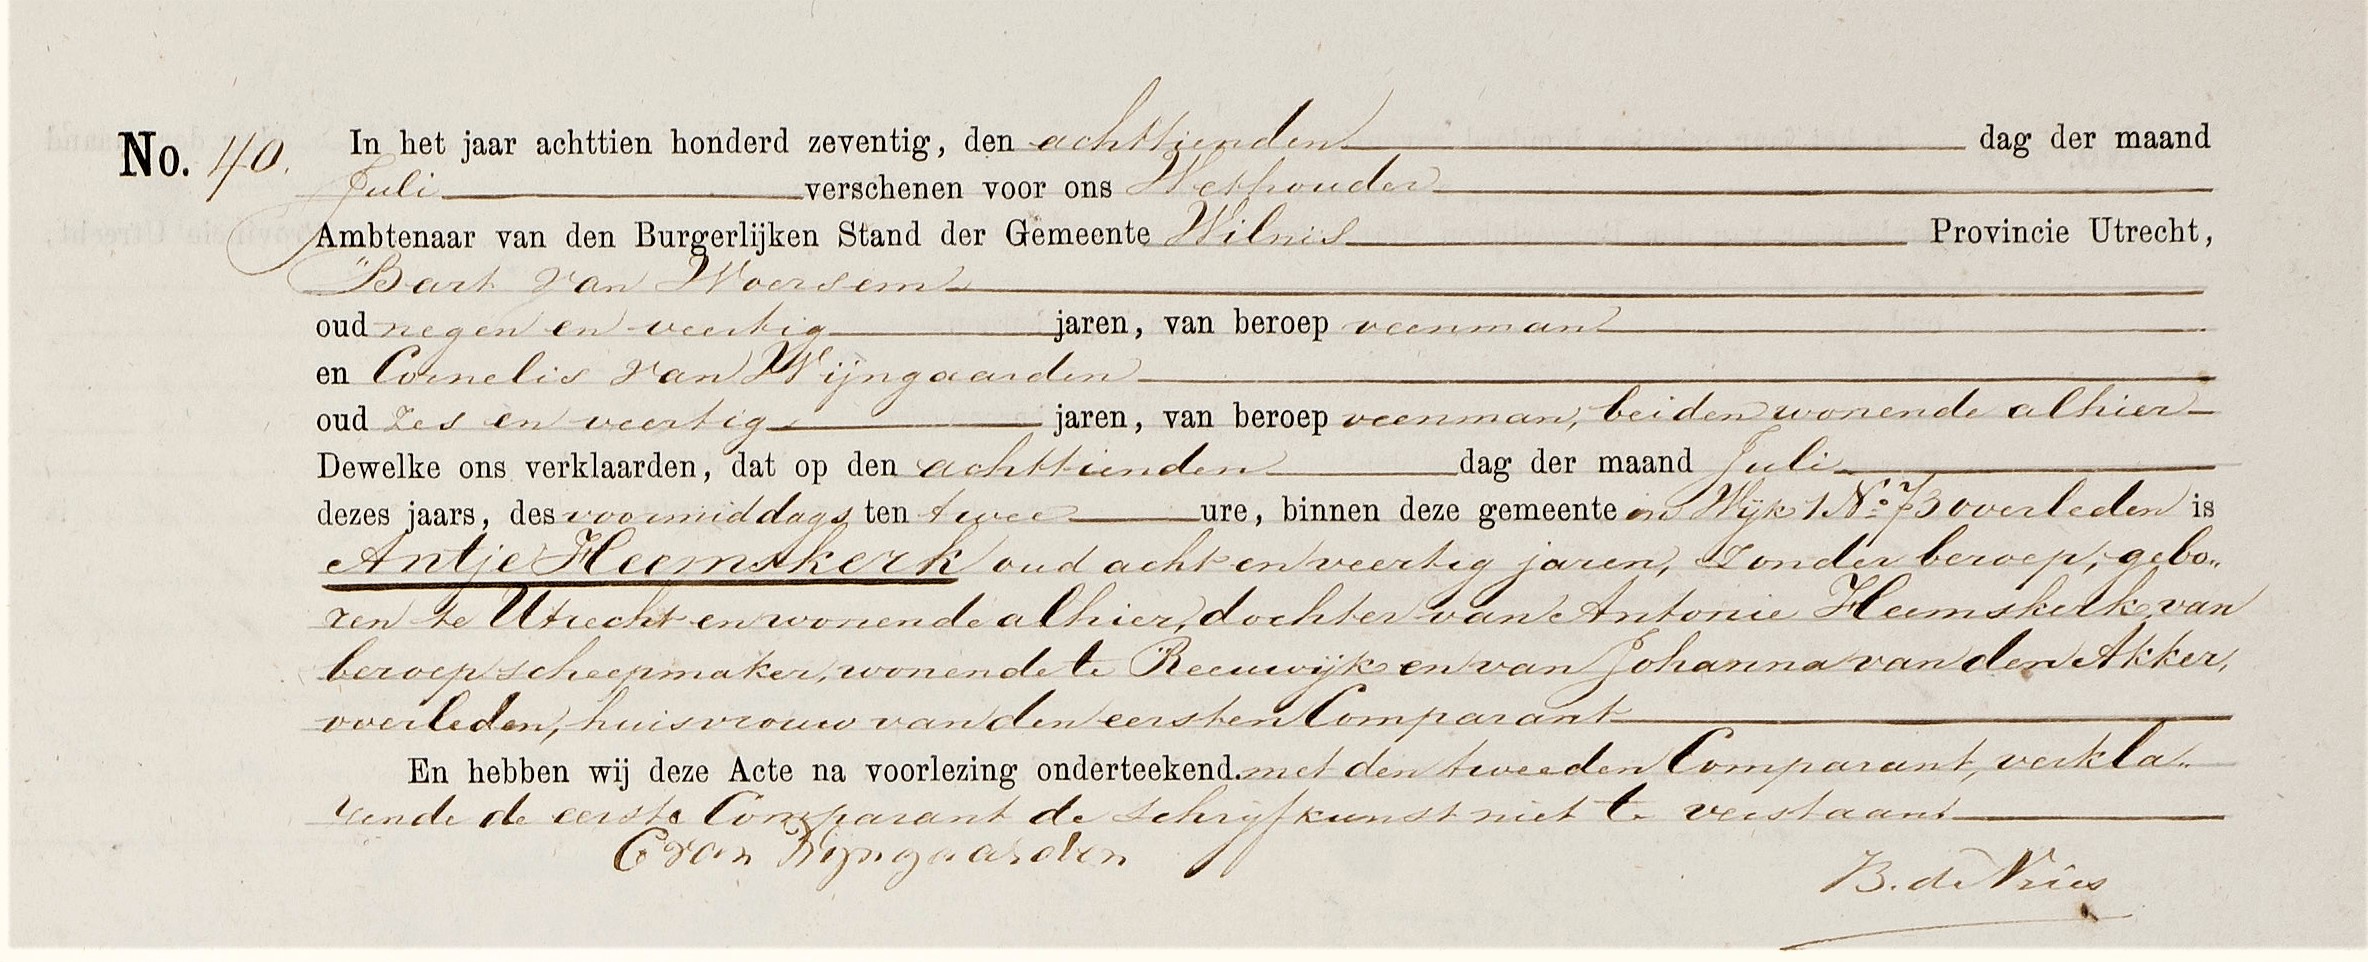 No. 40. In het jaar achttien honderd zeventig, den achttienden dag der maand
Juli verschenen voor ons Wethouder
Ambtenaar van den Burgerlijken Stand der Gemeente Wilnis Provincie Utrecht,
Bart van Woersem
oud negen en veertig jaren, van beroep veenman
en Cornelis van Wijngaarden
oud zes en veertig jaren, van beroep veenman, beiden wonende alhier
Dewelke ons verklaarden, dat op den achttienden dag der maand Juli
dezes jaars, des voormiddags ten twee ure, binnen deze gemeente in Wijk 1 No. 73 overleden is
Antje Heemskerk oud acht en veertig jaren, zonder beroep, gebo„
ren te Utrecht en wonende alhier, dochter van Antonie Heemskerk, van
beroep scheepmaker, wonende te Reeuwijk en van Johanna van den Akker,
overleden, huisvrouw van den eersten Comparant
En hebben wij deze Acte na voorlezing onderteekend. met den tweeden Comparant, verkla„
rende de eerste Comparant de schrijfkunst niet te verstaan
C van Wijngaarden
B. de Vries